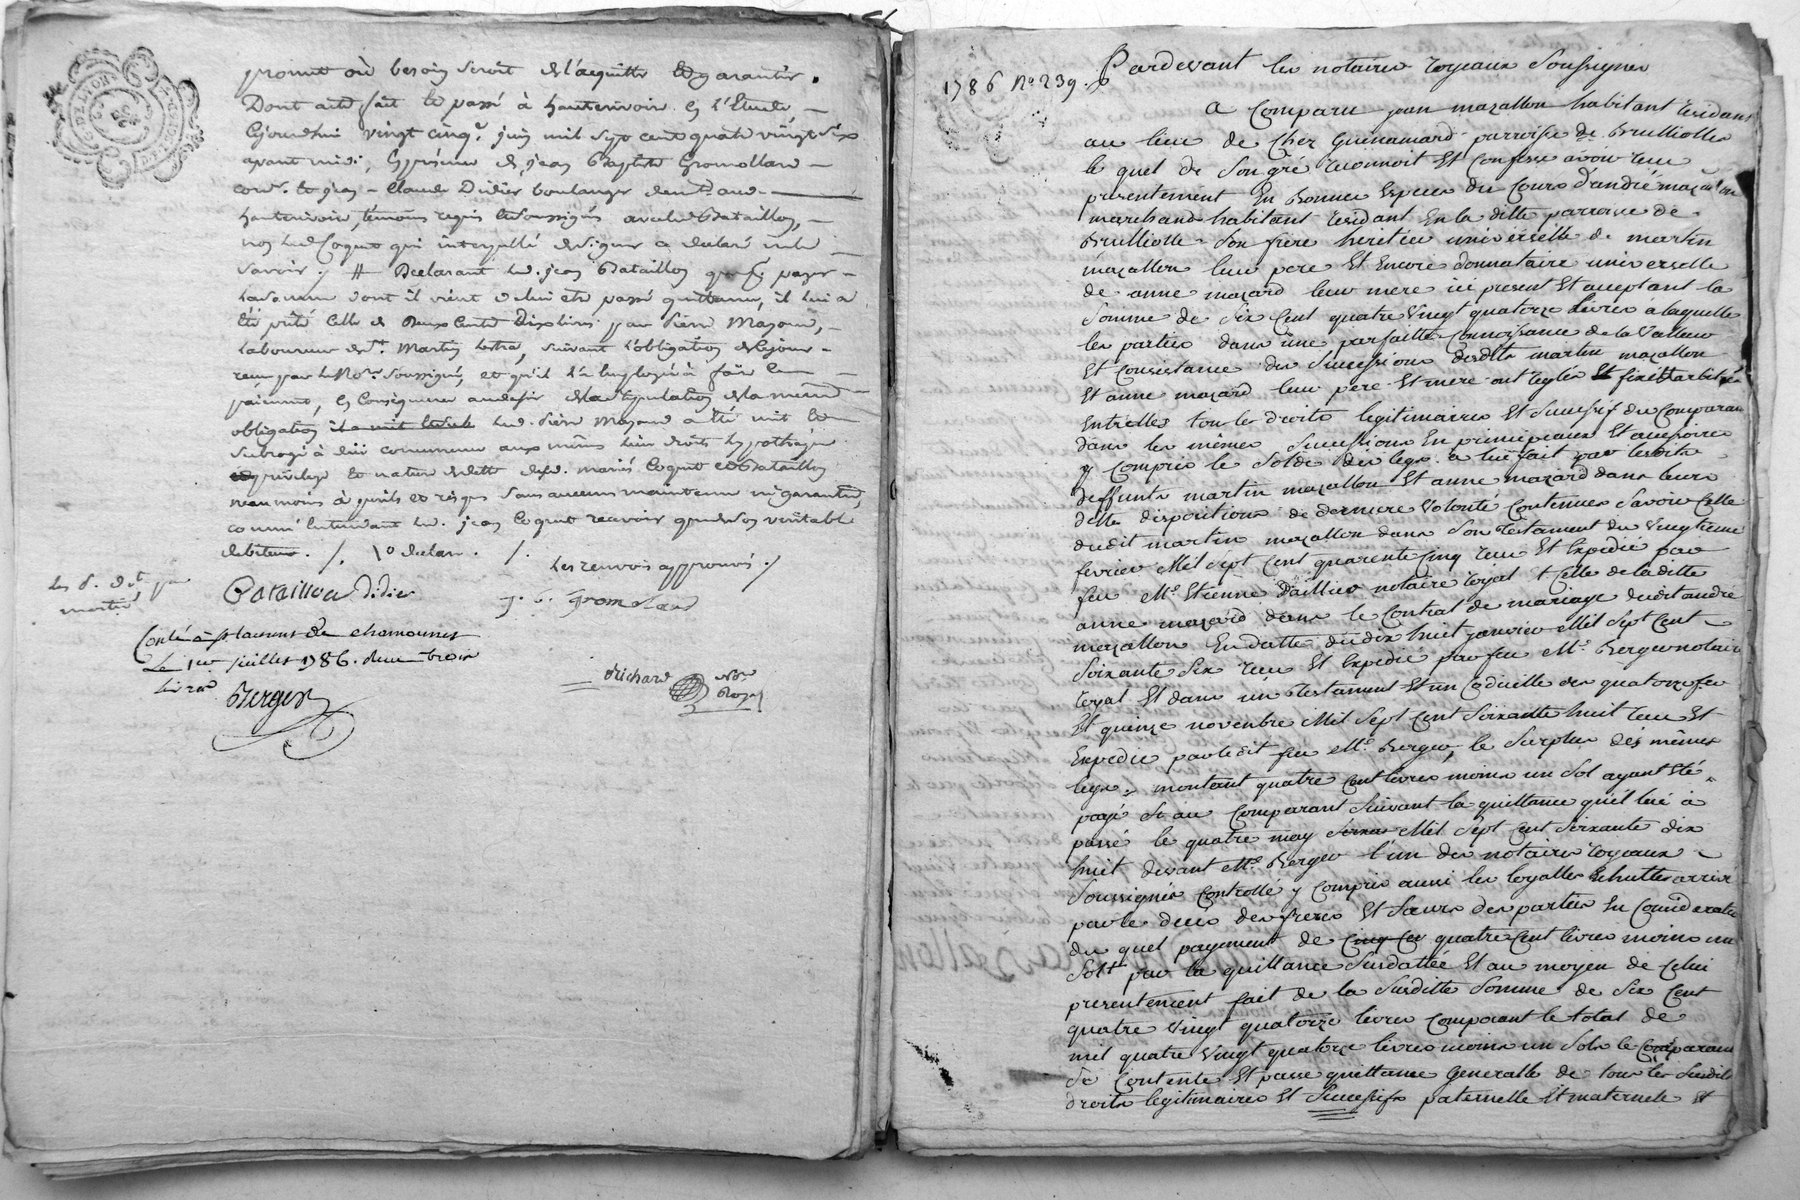 promet où besoin seroit de l'acquitter et garantir.
Dont acte fait et passé à hauterivoir en l'Etude
cejourdhui vingt cinq juin mil sept cent quatre vingt six
avant midi, en présence de jean Baptiste Gromollard
cordr. et jean Claude Didier boulanger dem.t aud.
hauterivoir, témoins requis et soussignés avec led. Bataillon,
non led. Coquet qui interpellé de signer a declaré ne le
savoir ./ # Declarant led. jean Bataillon que pr. payer
la somme dont il vient de lui être passé quittance, il lui a
été prêté celle de Deux Cent Dix livres par Pierre Mazeau,
laboureur de St. Martin lestra, suivant l'obligation de ce jour
reçue par le No.re soussigné, et qu'il l'a employée à faire le
paiement, en conséquence au desir de la stipulation de la même
obligation il a mit led. Pierre Mazeau a été mit et
subrogé à lui comme aux mêmes lieu droits hypothèque
privilege et nature de dette desd. mariés Coquet et Bataillon
néanmoins à perils et risques sans aucune maintenue ni garantie,
comme entendant led. jean Coquet recevoir que de son véritable
debiteur. /. declar. /.
les renvois approuvés ./
Bataillon Didier
j. b. Gromolard
Conlé à St laurent de chamousset
Le 1er juillet 1786. Reçu trois
Berger
Richard
No.re
Royal
1786 No 239.
Pardevant les notaires royeaux Soussignés
A Comparu jean mazallon habitant residant
au lieu de Chez Guenamard parroisse de Brulliolles
le quel de Son gré reconnoit Et Confesse avoir reçu
presentement En Bonnes Especes du Cours d'andré mazallon
marchand habitant residant En la ditte parroisse de
Brulliolle Son frere heritier universelle de martin
mazallon leur pere Et Encore donnataire universelle
de anne mazard leur mere ici present Et acceptant la
Somme de Six Cent quatre Vingt quatorze Livres a laquelle
les parties dans une parfaitte Connoissance de la Valleur
Et Consistance des Successions desdits martin mazallon
Et anne mazard leur pere Et mere ont reglés Et fixés
Entrelles tous les droits legitimaires Et Successif du Comparan
dans les mêmes Successions En principeaux Et accessoires
y Compris le Solde des legs a lui fait par lesdits
deffunts martin mazallon Et anne mazard dans leurs
dittes dispositions de derniere Volonté Contenues Savoir Celle
dudit martin mazallon dans Son Testament du Vingtieme
fevrier Mil Sept Cent quarente Cinq reçu Et Expedié par
feu Me. Etienne Dallier notaire royal & Celle de laditte
anne mazard dans le Contrat de mariage dudit andré
mazallon En datte du dix huit janvier Mil Sept Cent
Soixante Six reçu Et Expedié par feu Me. Berger notaire
royal Et dans un Testament Et un Codicille des quatorze
Et quinze novembre Mil Sept Cent Soixante huit reçu Et
Expedié par ledit feu Me. Berger, le Surplus dés mêmes
legs montant quatre Cent livres moins un Sol ayant Eté
payé au Comparant Suivant la quittance qu'il lui à
passé le quatre may Mil Sept Cent Soixante dix
huit devant Me. Berger l'un des notaires royeaux
Soussignés Controllé y Compris aussi les loyalles Echuttes
par le decès des freres Et Sœurs des parties En Consideration
du quel payement de Cinq Ce quatre Cent livres moins un
Sols par la quittance Susdattée Et au moyen de Celui
presentement fait de la Susditte Somme de Six Cent
quatre Vingt quatorze livres Composant le total de
mil quatre Vingt quatorze livres moins un Sols le Comparant
Se Contente Et passe quittance Generalle de tous les Susdits
droits legitimaires Et Successifs paternelle Et maternele Et